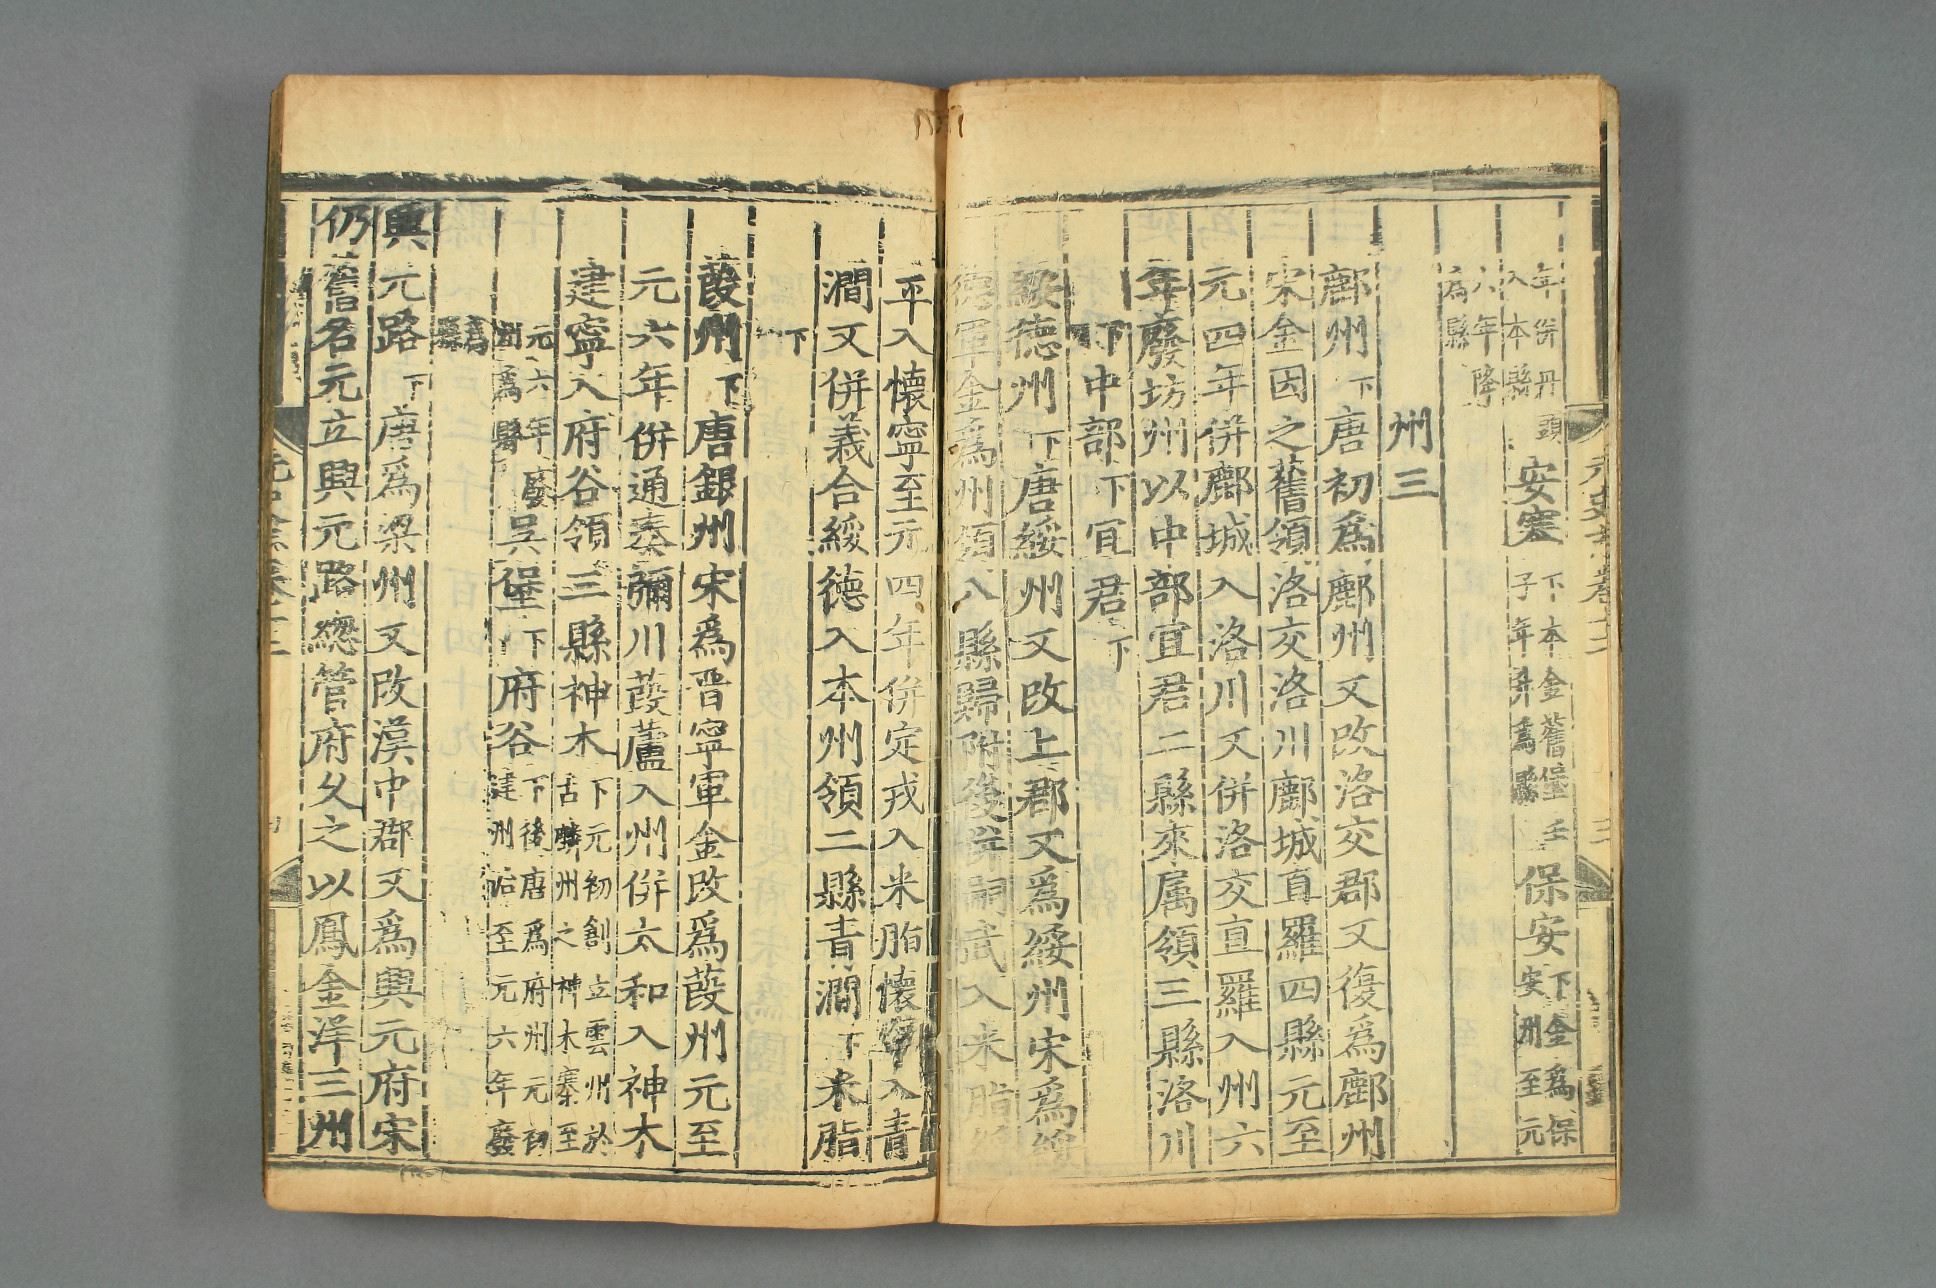 年併丹頭
入本縣
安塞
下本金舊堡壬
子年陞爲縣
保安
下金爲保
安州至元
八年降
爲縣
州三
鄜州下唐初爲鄜州又改洛交郡又復爲鄜州
宋金因之舊領洛交洛川鄜城直羅四縣元至
元四年併鄜城入洛川又併洛交直羅入州六
年廢坊州以中部宜君二縣來属領三縣洛川
下中部下宜君下
綏德州下唐綏州又改上郡又爲綏州宋爲綏
德軍金爲州領八縣歸附後併嗣武入米脂
平入懷寧至元四年併定戎入米脂懷寧入青
澗又併義合綏德入本州領二縣青澗下米脂
下
葭州下唐銀州宋爲晋寧軍金改爲葭州元至
元六年併通秦彌川葭蘆入州併太和入神木
建寧入府谷領三縣神木
下元初創立雲州於
古麟州之神木寨至
元六年廢
州爲縣
吳堡下府谷
下後唐爲府州元初
建州治至元六年廢
爲
縣
興元路下唐爲梁州又改漢中郡又爲興元府宋
仍舊名元立興元路緫管府乆之以鳳金洋三州